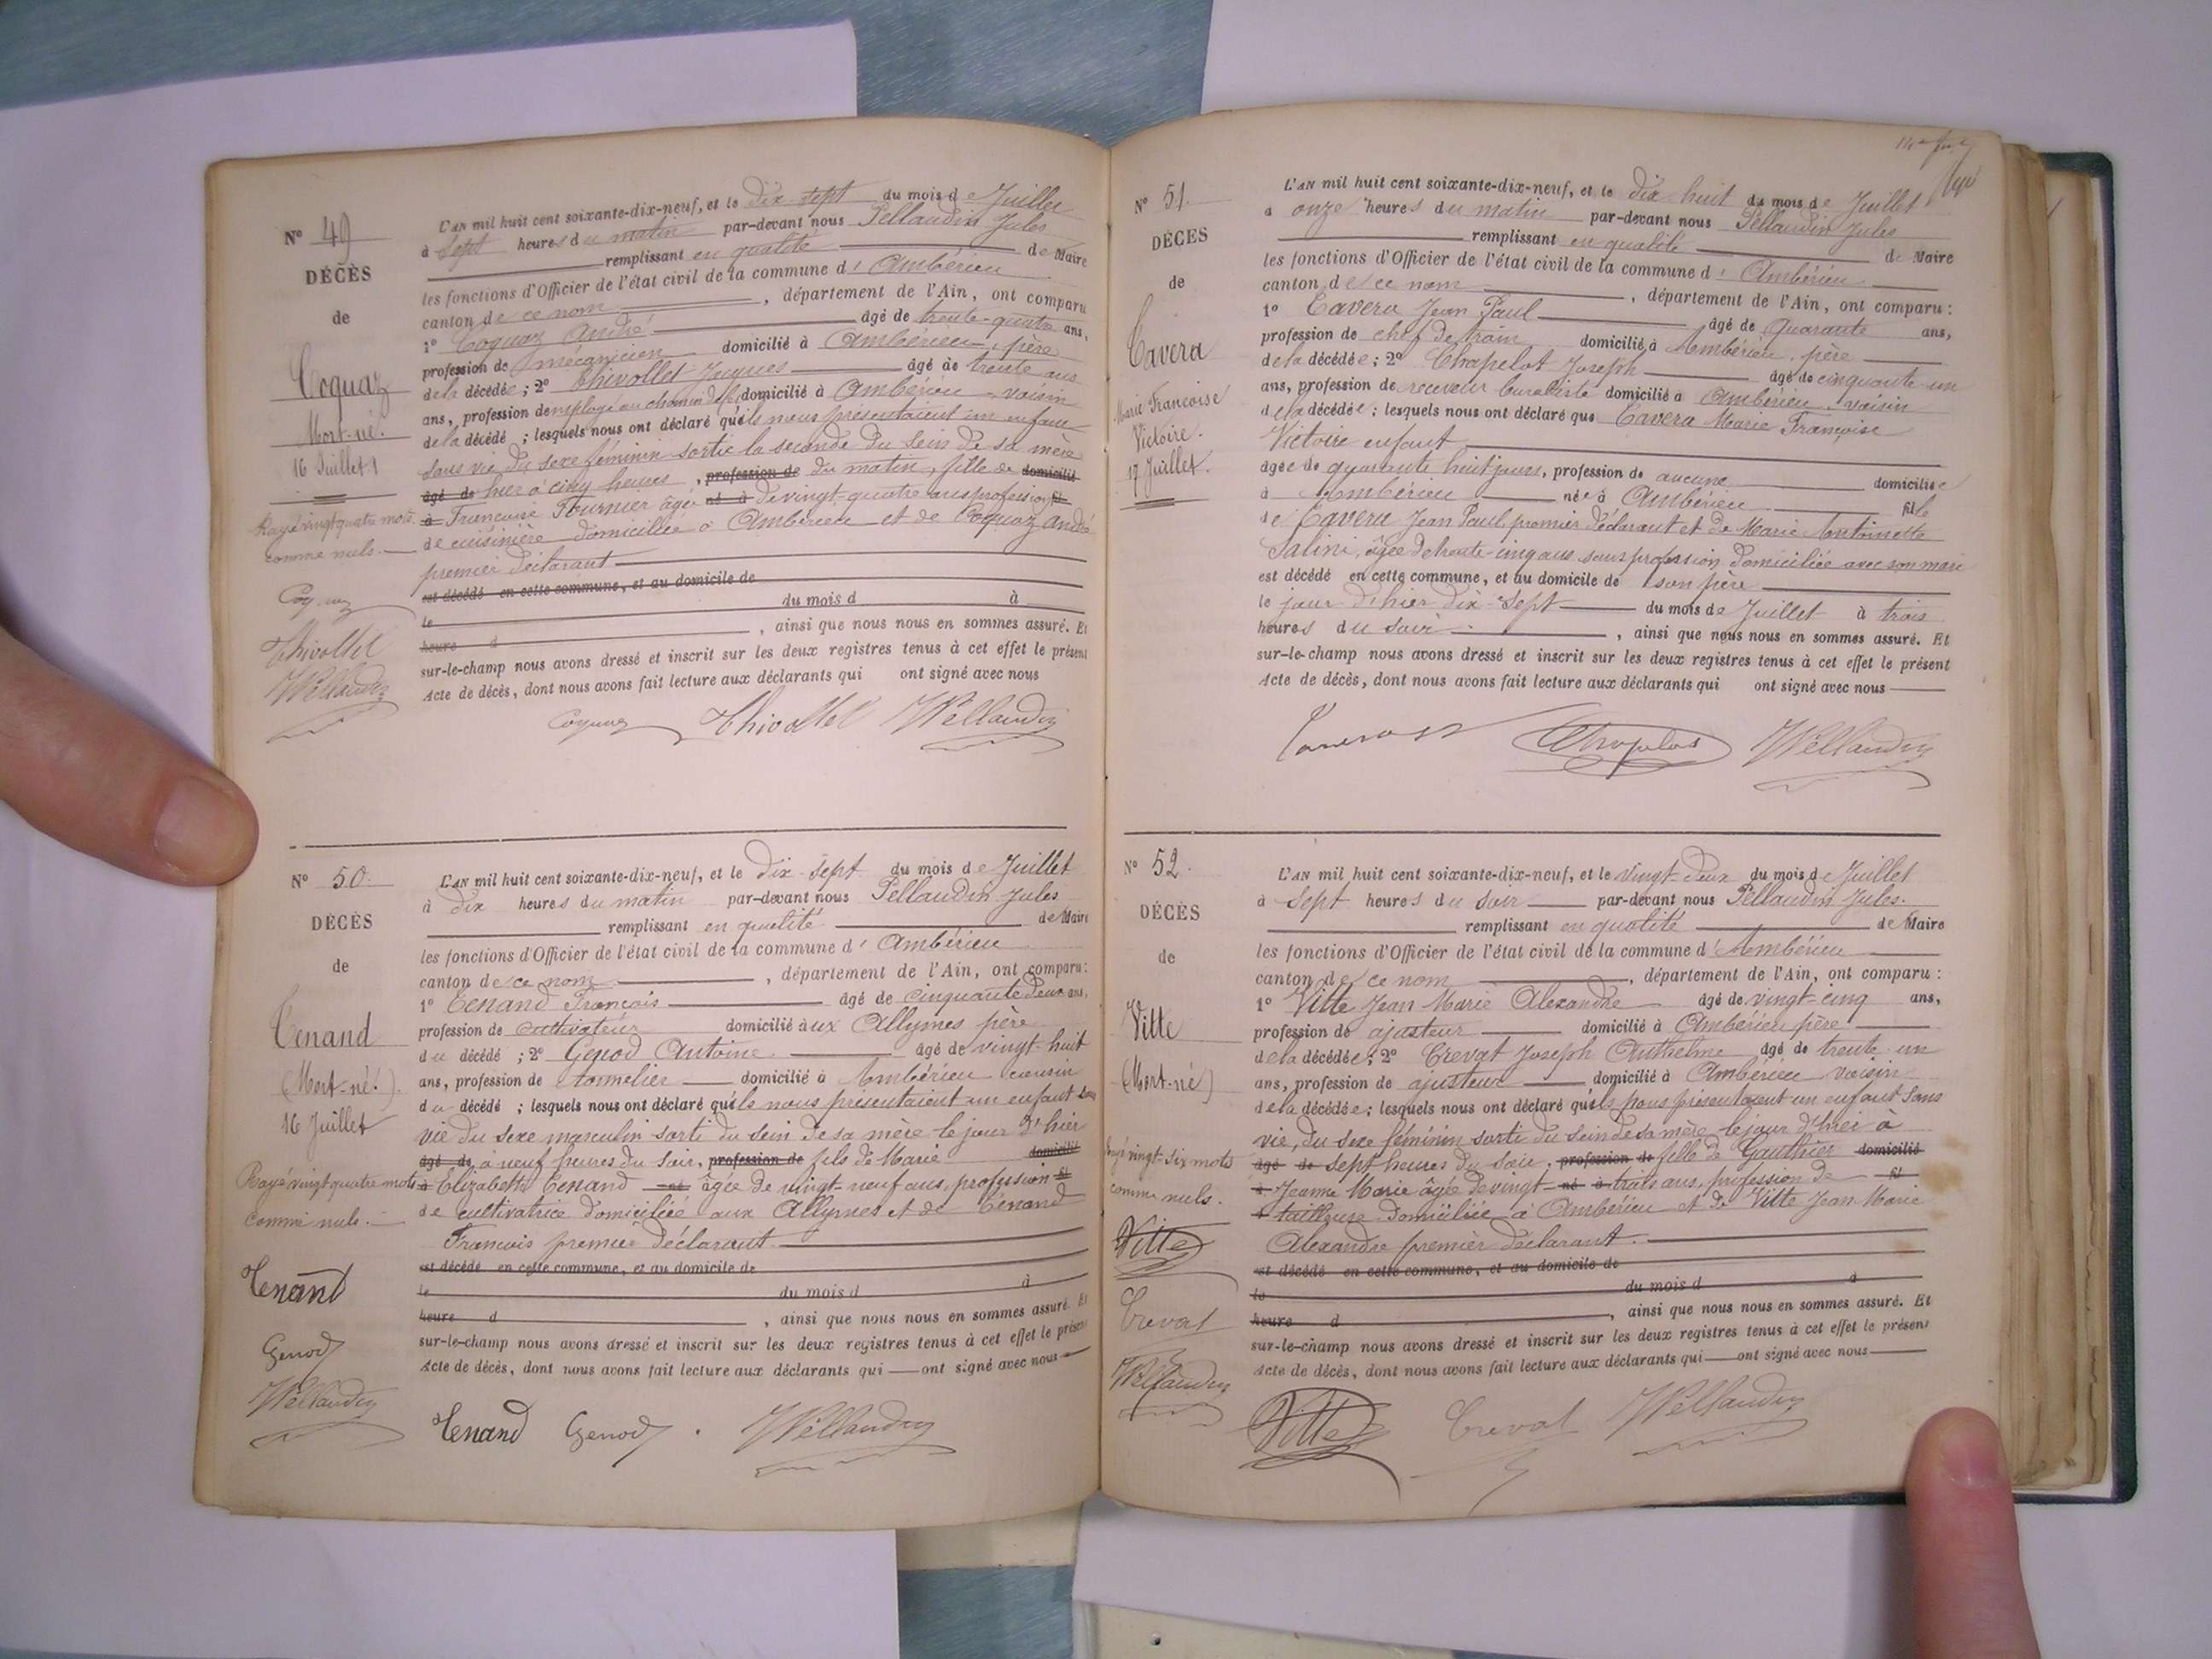 N° 49
DÉCÈS
de
Coquaz
Mort-né.
16 Juillet
Rayé vingt quatre mots
comme nuls.
Coquaz
Thivollet
JPellaudin
L'AN mil huit cent soixante-dix-neuf, et le dix sept du mois de Juillet
à sept heures du matin par-devant nous Pellaudin Jules
remplissant en qualité de Maire
les fonctions d'Officier de l'état civil de la commune d'Ambérieu
canton de ce nom, département de l'Ain, ont comparu
1° Coquaz André âgé de trente-quatre ans,
profession de mécanicien domicilié à Ambérieu, père
de la décédée; 2° Thivollet Jacques âgé de trente ans
ans, profession d'employé au chemin de fer domicilié à Ambérieu voisin
de la décédé ; lesquels nous ont déclaré qu'ils nous présentaient un enfant
sans vie du sexe féminin sortie la seconde du sein de sa mère
âgé de hier à cinq heures, profession de du matin, fille de domicilié
à Francoise Tournier âgée né à de vingt-quatre ans profession fil
de cuisinière domiciliée à Ambérieu et de Coquaz André
premier déclarant
est décédé en cette commune, et au domicile de
le du mois d à
heure d , ainsi que nous nous en sommes assuré. Et
sur-le-champ nous avons dressé et inscrit sur les deux registres tenus à cet effet le présent
Acte de décès, dont nous avons fait lecture aux déclarants qui ont signé avec nous
Coquaz Thivollet JPellaudin
N° 50
DÉCÈS
de
Tenand
(Mort-né.)
16 Juillet
Rayé vingt quatre mots
comme nuls.
Tenand
Genod
JPellaudin
L'AN mil huit cent soixante-dix-neuf, et le dix-sept du mois de Juillet
à dix heures du matin par-devant nous Pellaudin Jules
remplissant en qualité de Maire
les fonctions d'Officier de l'état civil de la commune d'Ambérieu
canton de ce nom, département de l'Ain, ont comparu :
1° Tenand François âgé de cinquante deux ans,
profession de cultivateur domicilié aux Allymes père
du décédé ; 2° Genod Antoine âgé de vingt-huit
ans, profession de tonnelier domicilié à Ambérieu cousin
du décédé ; lesquels nous ont déclaré qu'ils nous présentaient un enfant sans
vie du sexe masculin sorti du sein de sa mère le jour d'hier
âgé de à neuf heures du soir, profession de fils de Marie domicilié
à Elizabeth Tenand né âgée de vingt-neuf ans, profession fil
de cultivatrice domiciliée aux Allymes et de Tenand
Francois premier déclarant
est décédé en cette commune, et au domicile de
le du mois d à
heure d , ainsi que nous nous en sommes assuré. Et
sur-le-champ nous avons dressé et inscrit sur les deux registres tenus à cet effet le présent
Acte de décès, dont nous avons fait lecture aux déclarants qui ont signé avec nous
Tenand Genod JPellaudin
N° 51.
DÉCÈS
de
Tavera
Marie Francoise
Victoire.
17 Juillet.
L'AN mil huit cent soixante-dix-neuf, et le dix huit du mois de Juillet
à onze heures du matin par-devant nous Pellaudin Jules
remplissant en qualité de Maire
les fonctions d'Officier de l'état civil de la commune d'Ambérieu
canton de ce nom, département de l'Ain, ont comparu :
1° Tavera Jean Paul âgé de quarante ans,
profession de chef de train domicilié à Ambérieu, père
de la décédée ; 2° Chapelot Joseph âgé de cinquante-un
ans, profession de receveur buraliste domicilié à Ambérieu, voisin
de la décédée ; lesquels nous ont déclaré que Tavera Marie Françoise
Victoire enfant
âgée de quarante huit jours, profession de aucune domiciliée
à Ambérieu née à Ambérieu fille
de Tavera Jean Paul premier déclarant et de Marie Antoinette
Salini, âgée de trente-cinq ans sans profession domiciliée avec son mari
est décédé en cette commune, et au domicile de son père
le jour d'hier dix-sept du mois de Juillet à trois
heures du soir, ainsi que nous nous en sommes assuré. Et
sur-le-champ nous avons dressé et inscrit sur les deux registres tenus à cet effet le présent
Acte de décès, dont nous avons fait lecture aux déclarants qui ont signé avec nous
JPellaudin
N° 52.
DÉCÈS
de
Vitte
(Mort-né)
Rayé vingt-six mots
comme nuls.
Vitte
Trevat
JPellaudin
L'AN mil huit cent soixante-dix-neuf, et le vingt-deux du mois de Juillet
à sept heures du soir par-devant nous Pellaudin Jules.
remplissant en qualité de Maire
les fonctions d'Officier de l'état civil de la commune d'Ambérieu
canton de ce nom, département de l'Ain, ont comparu :
1° Vitte Jean Marie Alexandre âgé de vingt-cinq ans,
profession de ajusteur domicilié à Ambérieu père
de la décédée ; 2° Trevat Joseph Anthelme âgé de trente-un
ans, profession de ajusteur domicilié à Ambérieu voisin
de la décédée ; lesquels nous ont déclaré qu'ils nous présentaient un enfant sans
vie, du sexe féminin sorti du sein de sa mère le jour d'hier à
âgé de sept heures du soir, profession de fille de Gauthier domicilié
à Jeanne Marie âgée de vingt né à trois ans, profession de fil
d tailleuse domiciliée à Ambérieu et de Vitte Jean Marie
Alexandre premier déclarant.
est décédé en cette commune, et au domicile de
le du mois d à
heure d , ainsi que nous nous en sommes assuré. Et
sur-le-champ nous avons dressé et inscrit sur les deux registres tenus à cet effet le présent
Acte de décès, dont nous avons fait lecture aux déclarants qui ont signé avec nous
Vitte Trevat JPellaudin